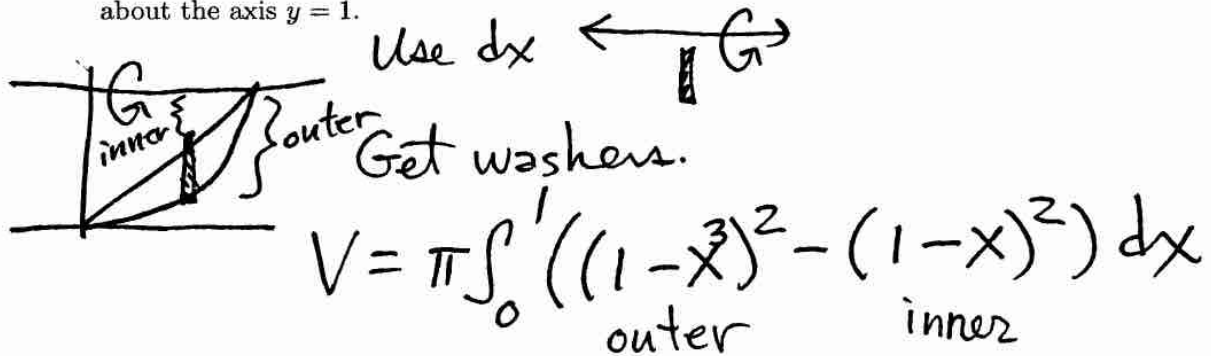 about the axis y = 1.
Use dx
inner
outer
Get washers.
V = π∫₀¹((1-x³)² - (1-x)²) dx
outer inner